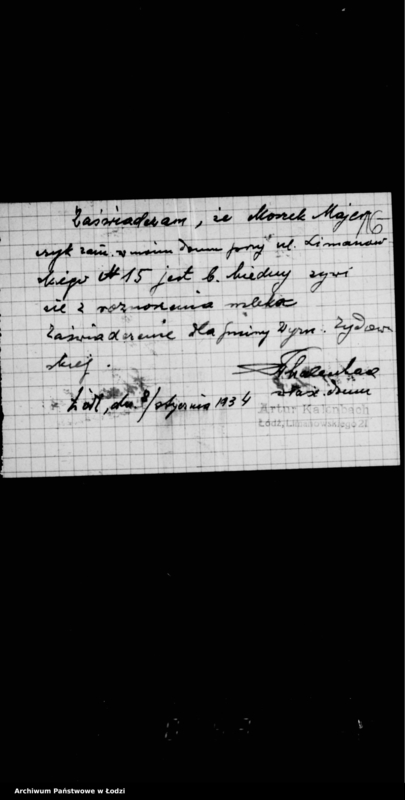 Zaświadczam, że Moszek Majer
czyk zam. w moim domu przy ul. Limanow
skiego № 15 jest b. biedny żywi
się z roznoszenia mleka
Zaświadczenie dla Gminy Wyzn. Żydow
skiej.
Łódź, dn. 8/stycznia 1934
właś. domu
Artur Kalenbach
Łódź, Limanowskiego 21
Archiwum Państwowe w Łodzi